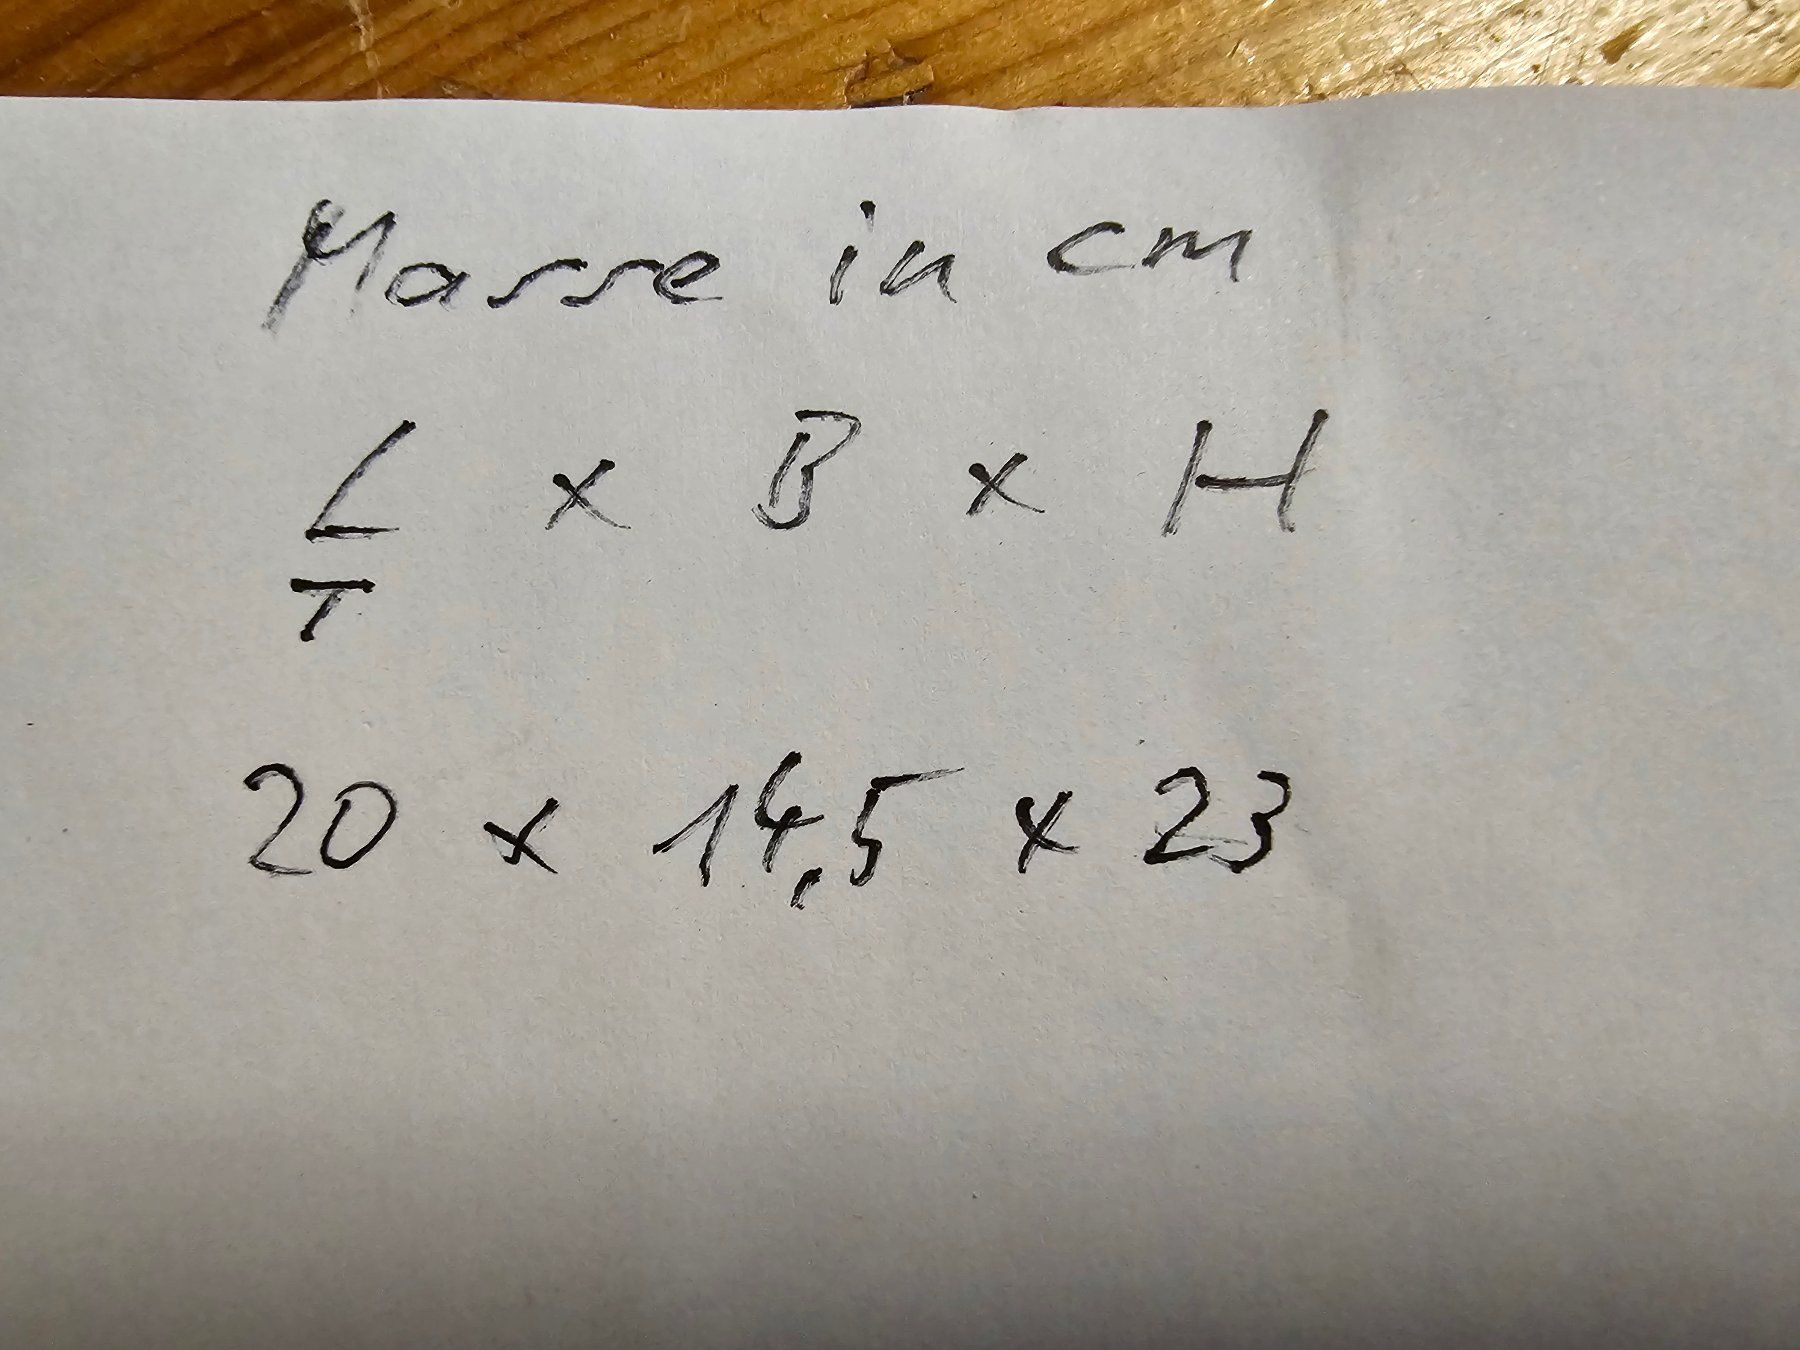 Masse in cm
L x B x H
T
20 x 14,5 x 23